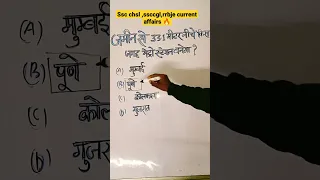 Ssc chsl ,ssccgl,rrbje current
affairs 🔥
जमीन से 33.1 मीटर नीचे किस
जगह मेट्रो स्टेशन बनेगा ?
(A) मुम्बई
(B) पुणे
(C) कोलकाता
(D) गुजरात
(A) मुम्बई
(B) पुणे
(C) कोल
(D) गुजरात